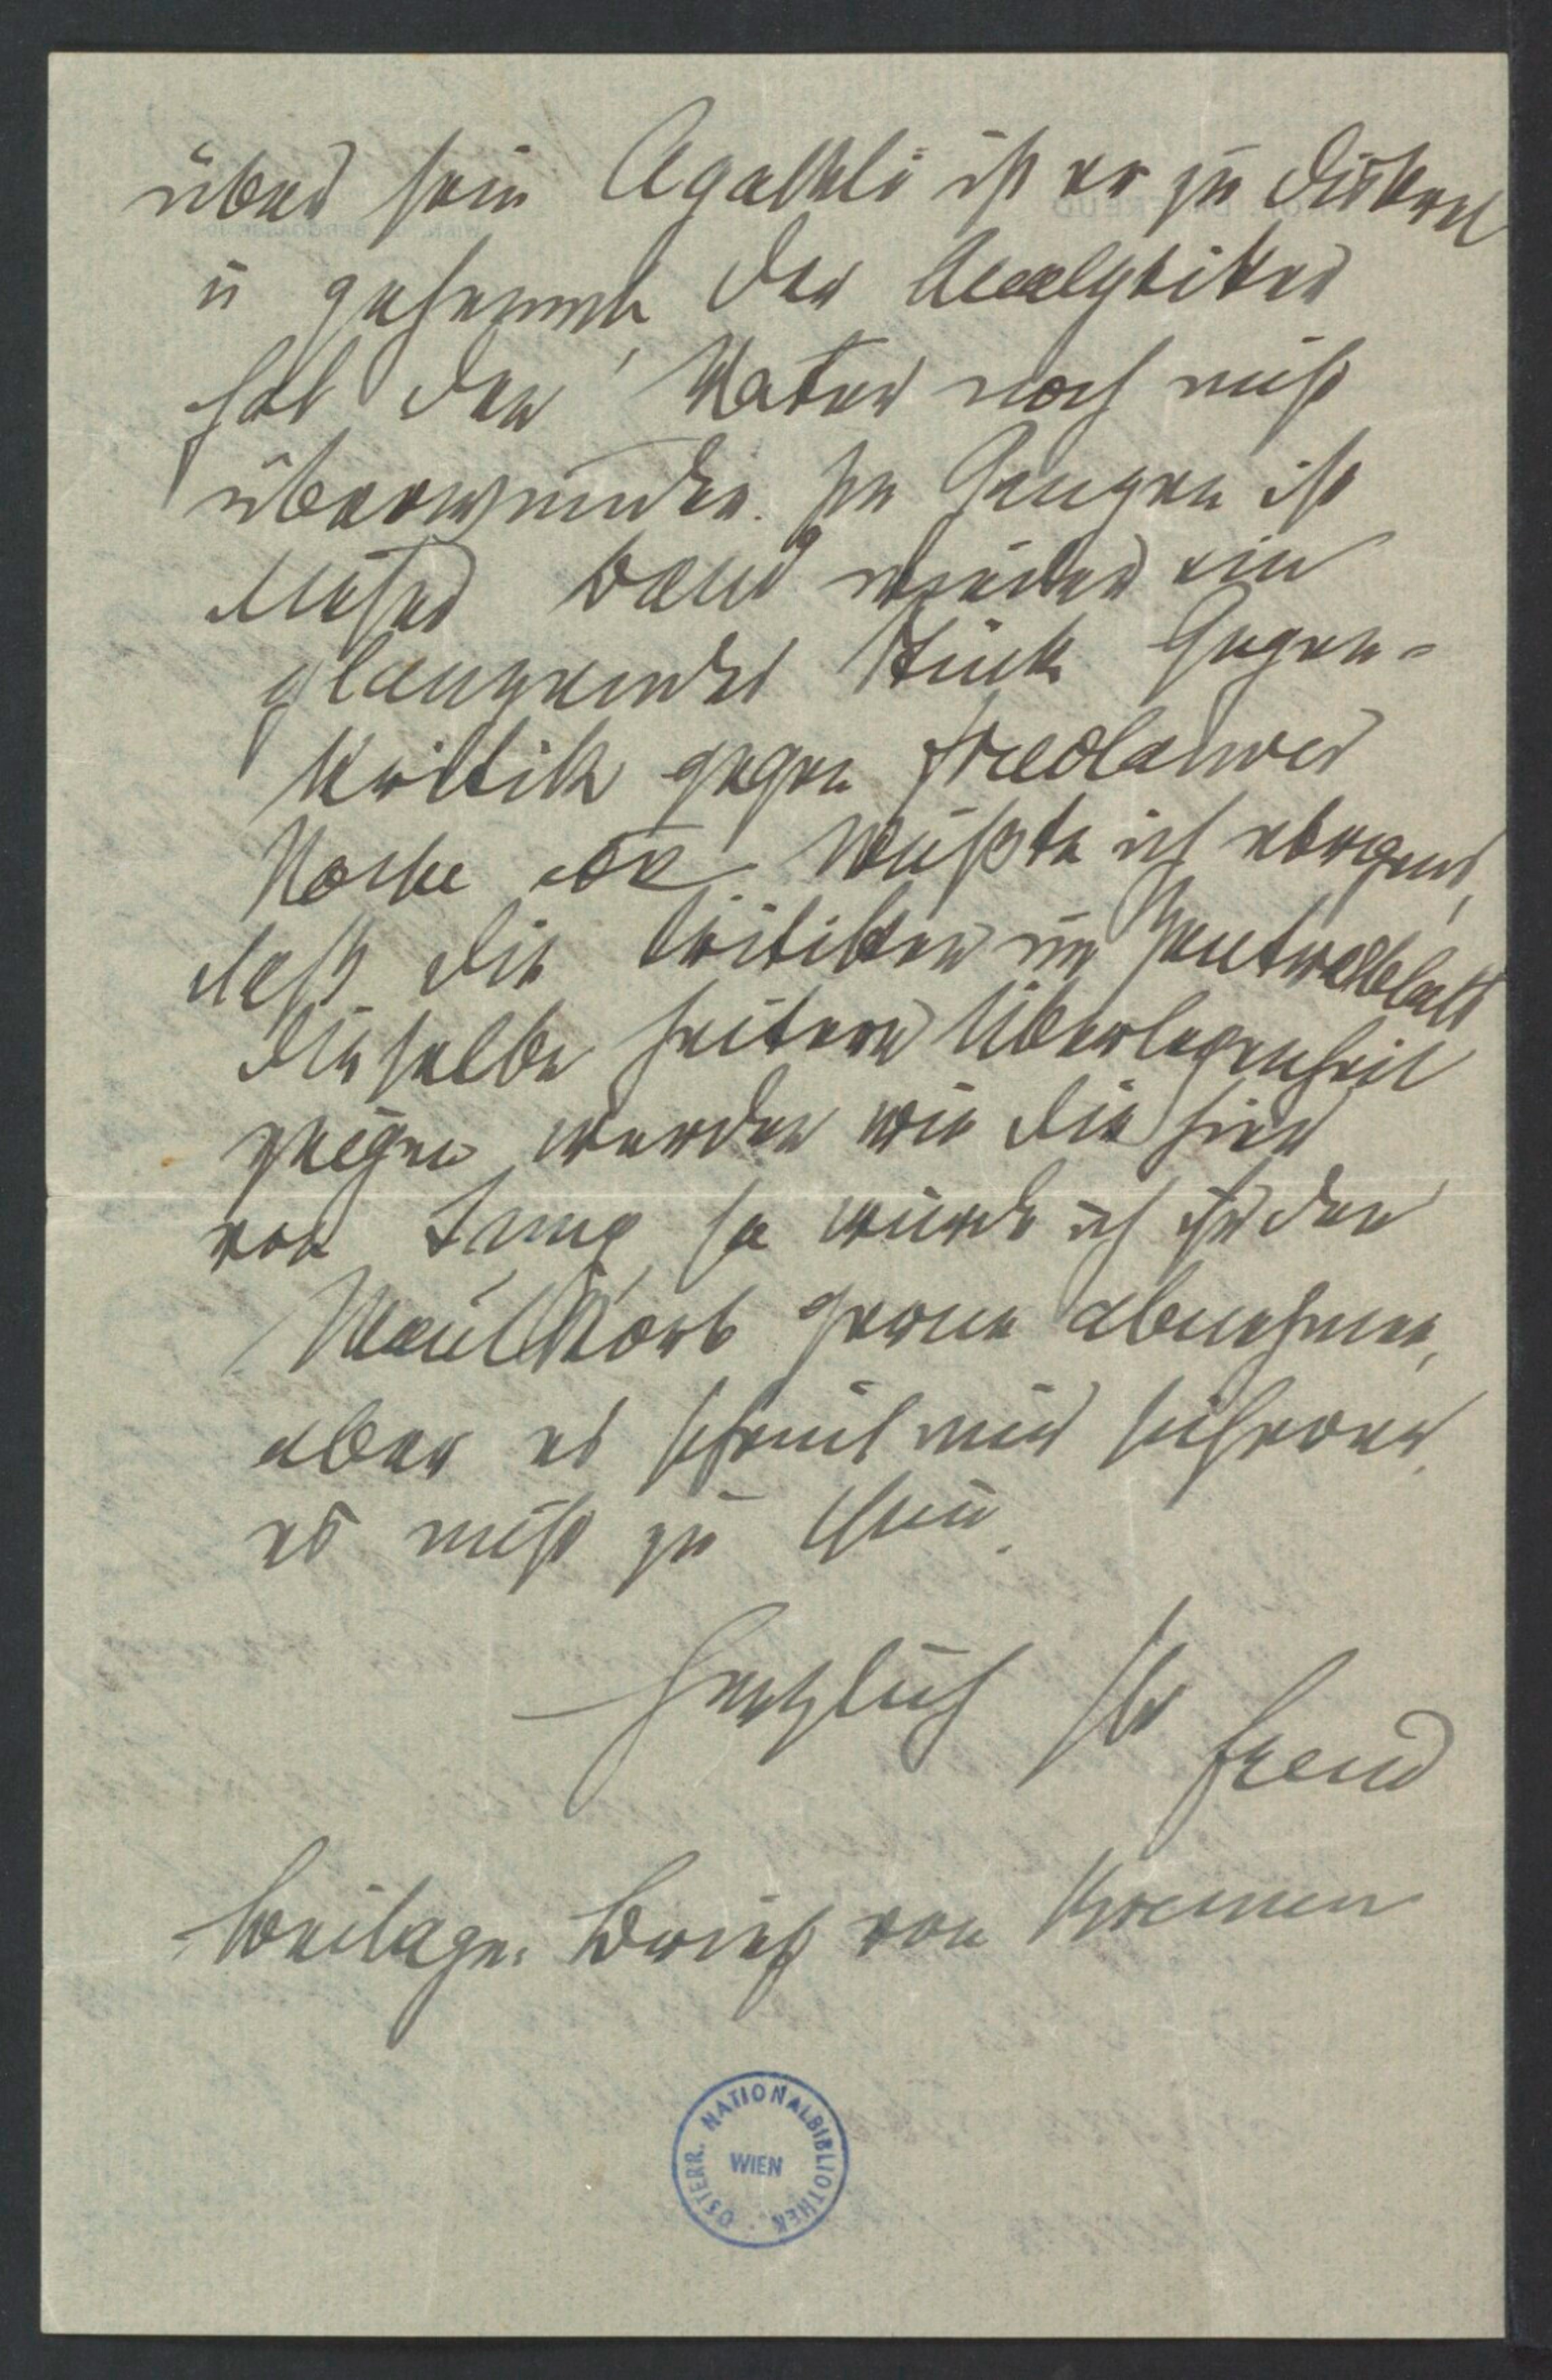 über sein Agathli ist er zu diskret
u gehemmt, der Analytiker
hat den Vater noch nicht
überwunden. Im Ganzen ist
dieser Band wieder ein
glänzendes Stück Gegen-
kritik gegen Friedländer
Hoche etc. Wüßte ich übrigens,
daß die Kritiken im Zentralblatt
dieselbe heitere Überlegenheit
zeigen werden wie die hier
von Jung, so würde ich ihr den
Maulkorb gerne abnehmen,
aber es scheint mir sicherer
es nicht zu thun.
Herzlich Ihr
Freud
Beilage: Brief von
ÖSTERR. NATIONALBIBLIOTHEK
WIEN